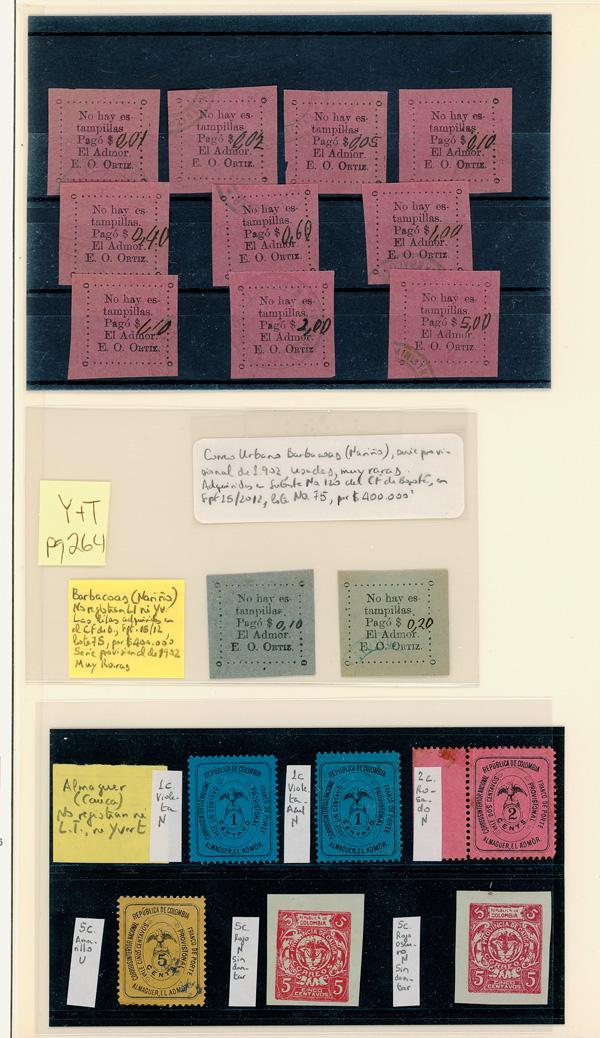 No hay es-
tampillas
Pagó $ 0,01
El Admor.
E. O. ORTIZ.
No hay es-
tampillas
Pagó $ 0,02
El Admor.
E. O. ORTIZ.
No hay es-
tampillas
Pagó $ 0,05
El Admor.
E. O. ORTIZ.
No hay es-
tampillas
Pagó $ 0,10
El Admor.
E. O. ORTIZ.
No hay es-
tampillas.
Pagó $ 0,40
El Admor.
E. O. ORTIZ.
No hay es-
tampillas.
Pagó $ 0,60
El Admor.
E. O. ORTIZ.
No hay es-
tampillas.
Pagó $ 1,00
El Admor.
E. O. ORTIZ.
No hay es-
tampillas.
Pagó $ 1,10
El Admor.
E. O. ORTIZ.
No hay es-
tampillas.
Pagó $ 2,00
El Admor.
E. O. ORTIZ.
No hay es-
tampillas.
Pagó $ 5,00
El Admor.
E. O. ORTIZ.
Correo Urbano Barbacoas (Nariño), serie provi-
sional de 1902 usadas, muy raras.
Adquiridas en Subasta No 120 del CF de Bogotá, en
Sept 15/2012, lote No. 75, por $400.000
Y+T
pg 264
Barbacoas (Nariño)
No registran LT ni Yv.
Las lilas adquiridas en
el CF de B., Spt. 15/12
lote 75, por $400.000
Serie provisional de 1902
Muy Raras
No hay es-
tampillas.
Pagó $ 0,10
El Admor.
E. O. ORTIZ.
No hay es-
tampillas.
Pagó $ 0,20
El Admor.
E. O. ORTIZ.
Almaguer
(Cauca)
No registran ni
L.T., ni Yvert
1c
Viole-
ta
N
REPÚBLICA DE COLOMBIA
CORREOS INTERIOR NACIONAL
FRANCO DE PORTE
PROVISIONAL
1
CENTAVO
ALMAGUER, EL ADMOR.
1c
Viole-
ta-
Azul
N
REPÚBLICA DE COLOMBIA
CORREOS INTERIOR NACIONAL
FRANCO DE PORTE
PROVISIONAL
1
CENTAVO
ALMAGUER, EL ADMOR.
2c.
Ro-
sa-
do
N
REPÚBLICA DE COLOMBIA
CORREOS INTERIOR NACIONAL
FRANCO DE PORTE
PROVISIONAL
VALE DOS CENTAVOS
2
CENTS
ALMAGUER, EL ADMOR.
5c.
Ama-
rillo
U
REPÚBLICA DE COLOMBIA
CORREOS INTERIOR NACIONAL
FRANCO DE PORTE
PROVISIONAL
5
CENTS
ALMAGUER, EL ADMOR.
5c.
Rojo
N
Sin
den-
tar
5 REPUBLICA DE COLOMBIA 5
CORREO
5 5
CINCO
CENTAVOS
5c.
Rojo
oscu-
ro
N
Sin
den-
tar
5 REPUBLICA DE COLOMBIA 5
CORREO
5 5
CINCO
CENTAVOS